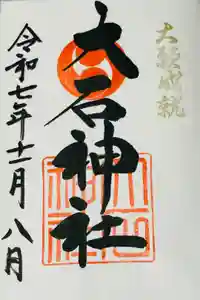 大願成就
大石神社
令和七年十二月八日